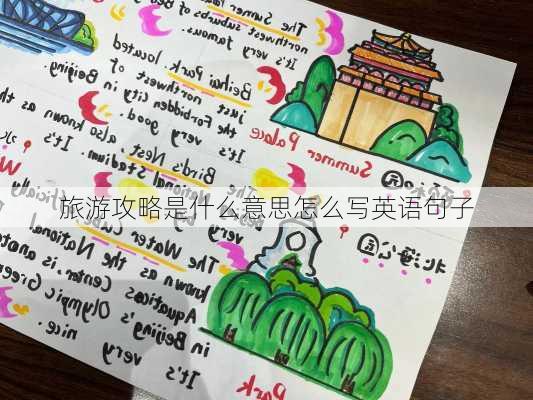 The Summer
northwest suburbs of
It's very famous.
Beihai Park, located
just northwest of
the Forbidden City in
Beijing.
It's very good.
Bird's Nest,
also known as
The National Stadium. It's
very
Summer Palace
园
旅游攻略是什么意思怎么写英语句子
The Water Cube
known as the National
Aquatics Center, is
in Beijing's Olympic Green
It's very nice.
北海公园
Park